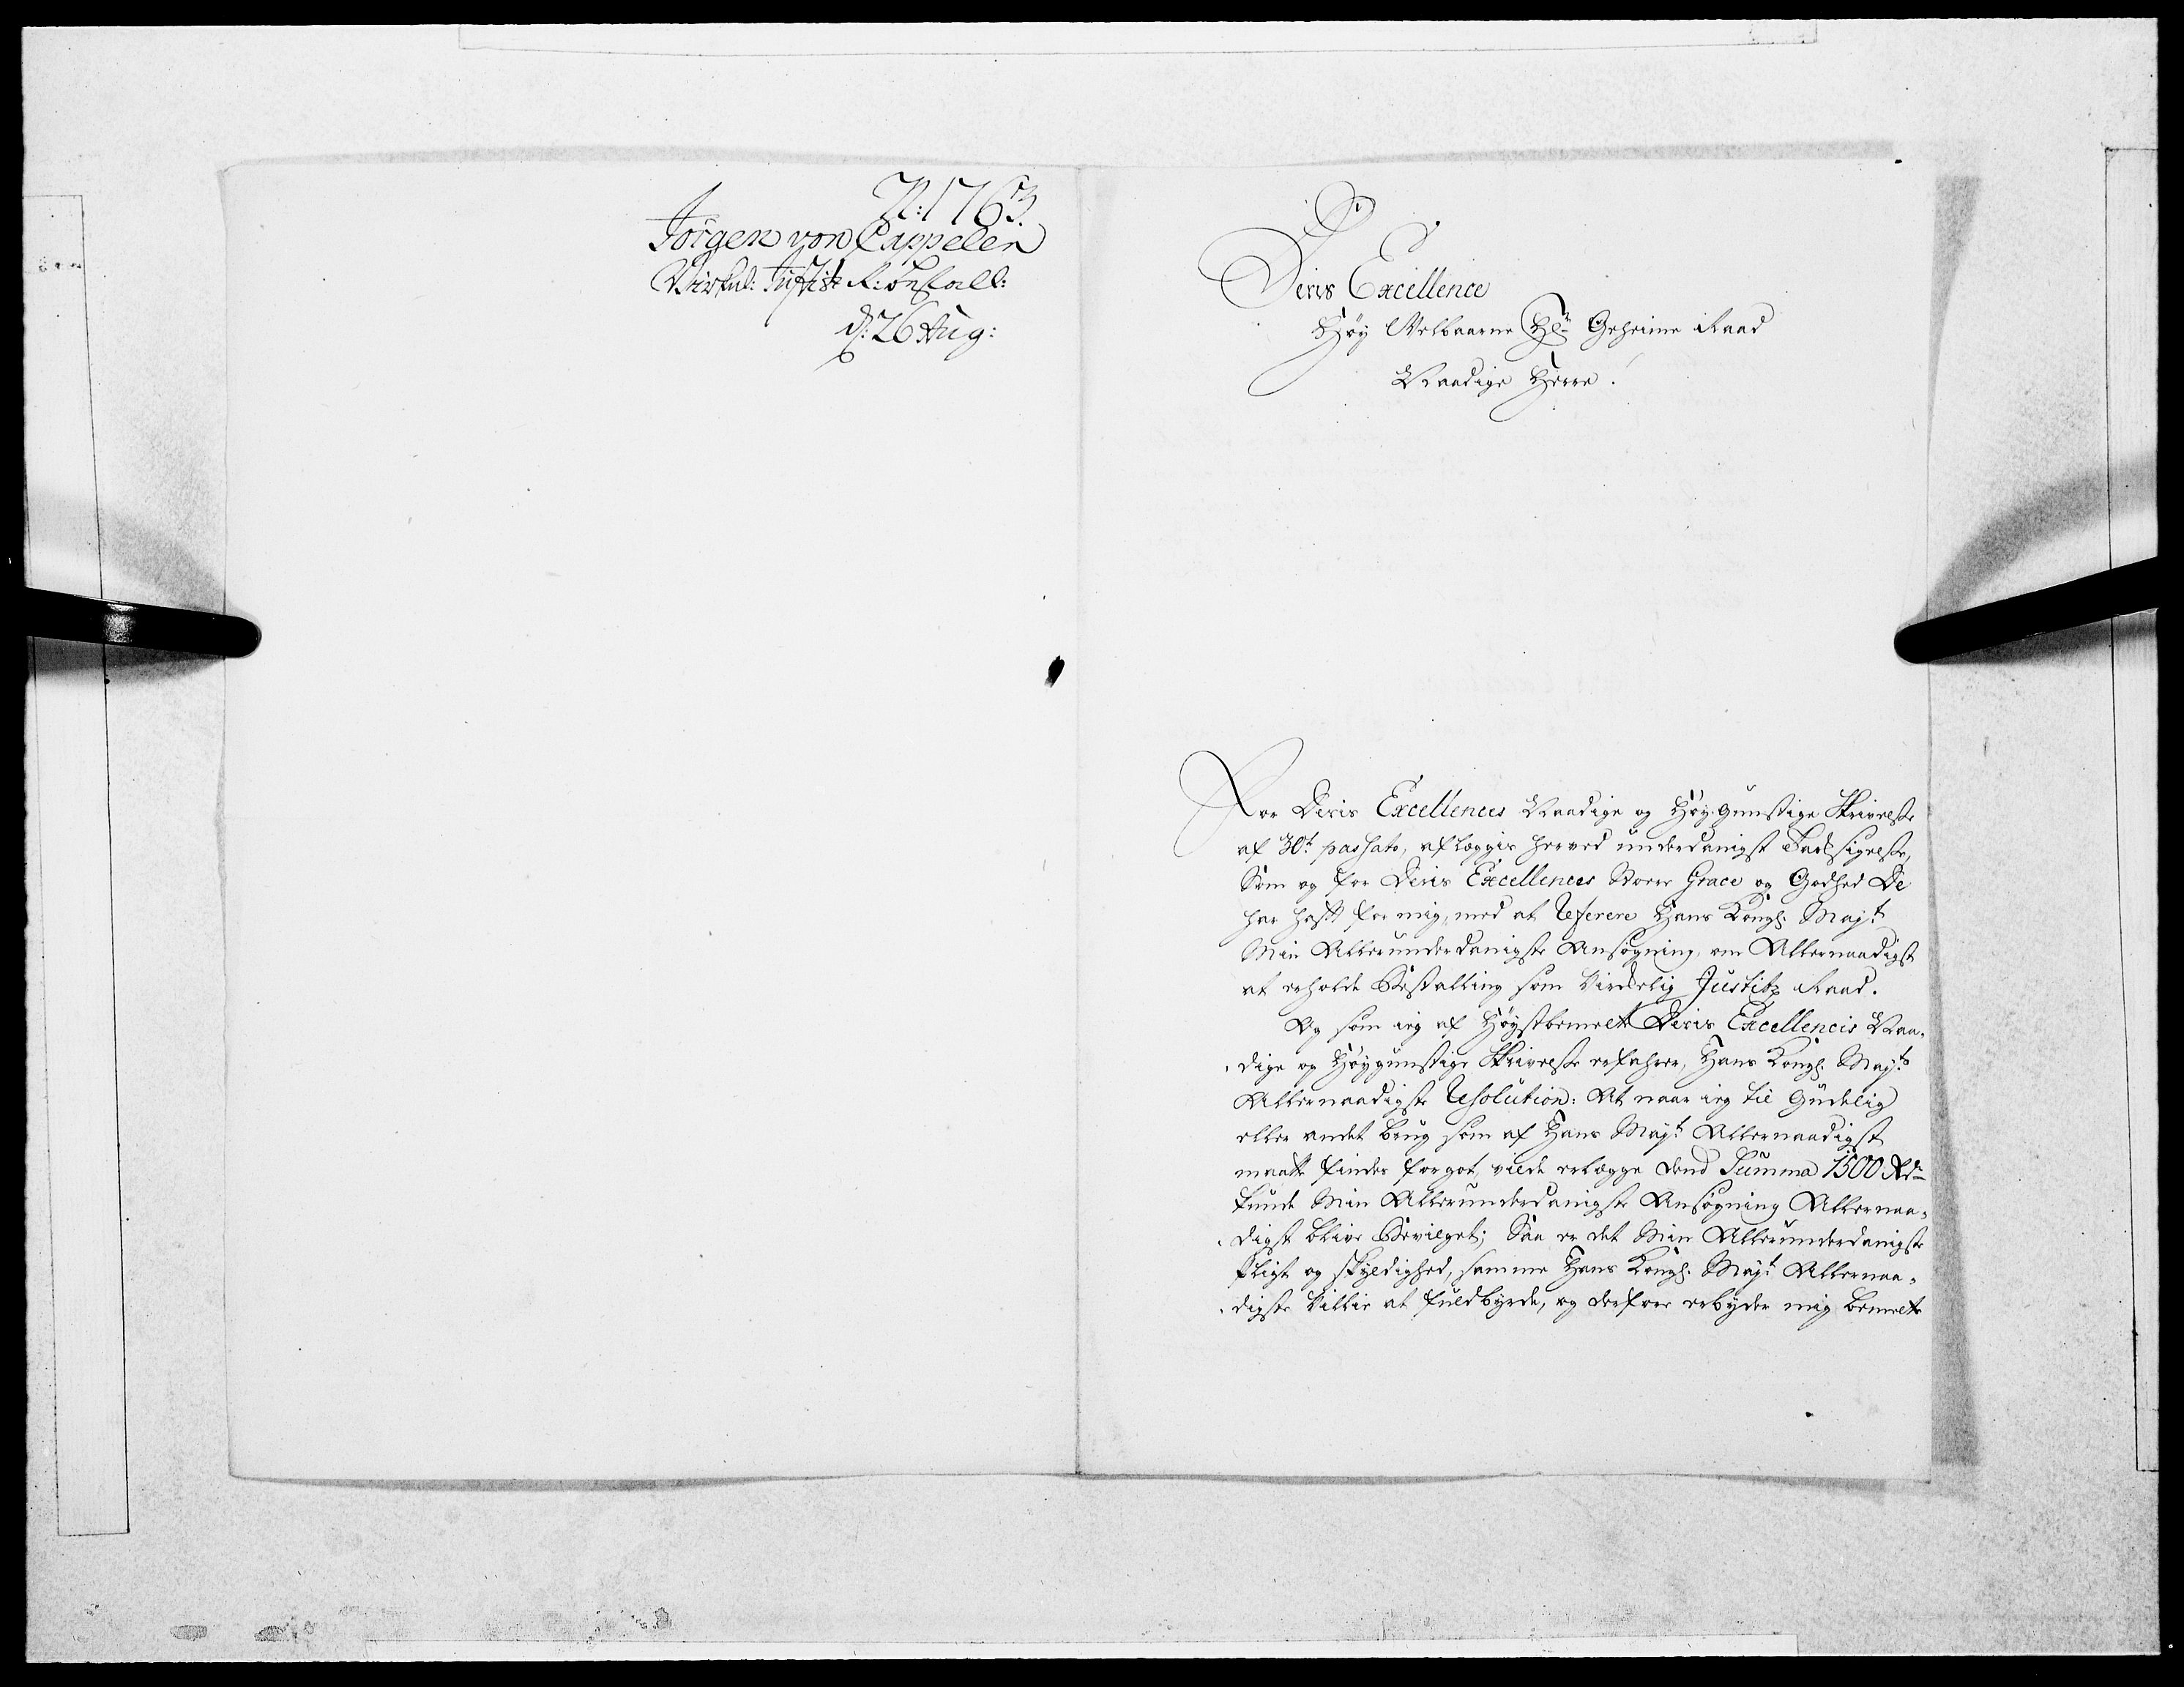 N: 1763.
Jörgen von Cappelen
Virkel: Justitz R: bestall:
d: 26 Aug:
Deris Excellence
Høy Velbaarne Hr. Geheime Raad
Naadige Herre!
For Deris Excellences Naadige og Høygunstige Skrivelse
af 30t. passato, aflægges herved underdanigst Taksigelse,
Som og for Deris Excellences Store Grace og Godhed De
har haft for mig, med at referere Hans Kongl. Majt.
Min Allerunderdanigste Ansøgning, om Allernaadigst
at erholde Bestalling som Virkelig Justitz Raad.
Og som ieg af Høystbemelte Deris Excellences Naa-
dige og Høygunstige Skrivelse erfahrer, Hans Kongl. Majts
Allernaadigste Resolution: At naar ieg til Gudelig
eller andet brug som af Hans Majt. Allernaadigst
maatte findes for got, vilde erlægge dend Summa 1500 Rdr
kunde Min Allerunderdanigste Ansøgning Allernaa-
digst blive Bevilget; Saa er det Min Allerunderdanigste
Pligt og skyldighed, samme Hans Kongl. Majt. Allernaa-
digste Villie at fuldbyrde, og derfore erbyder mig bemelte